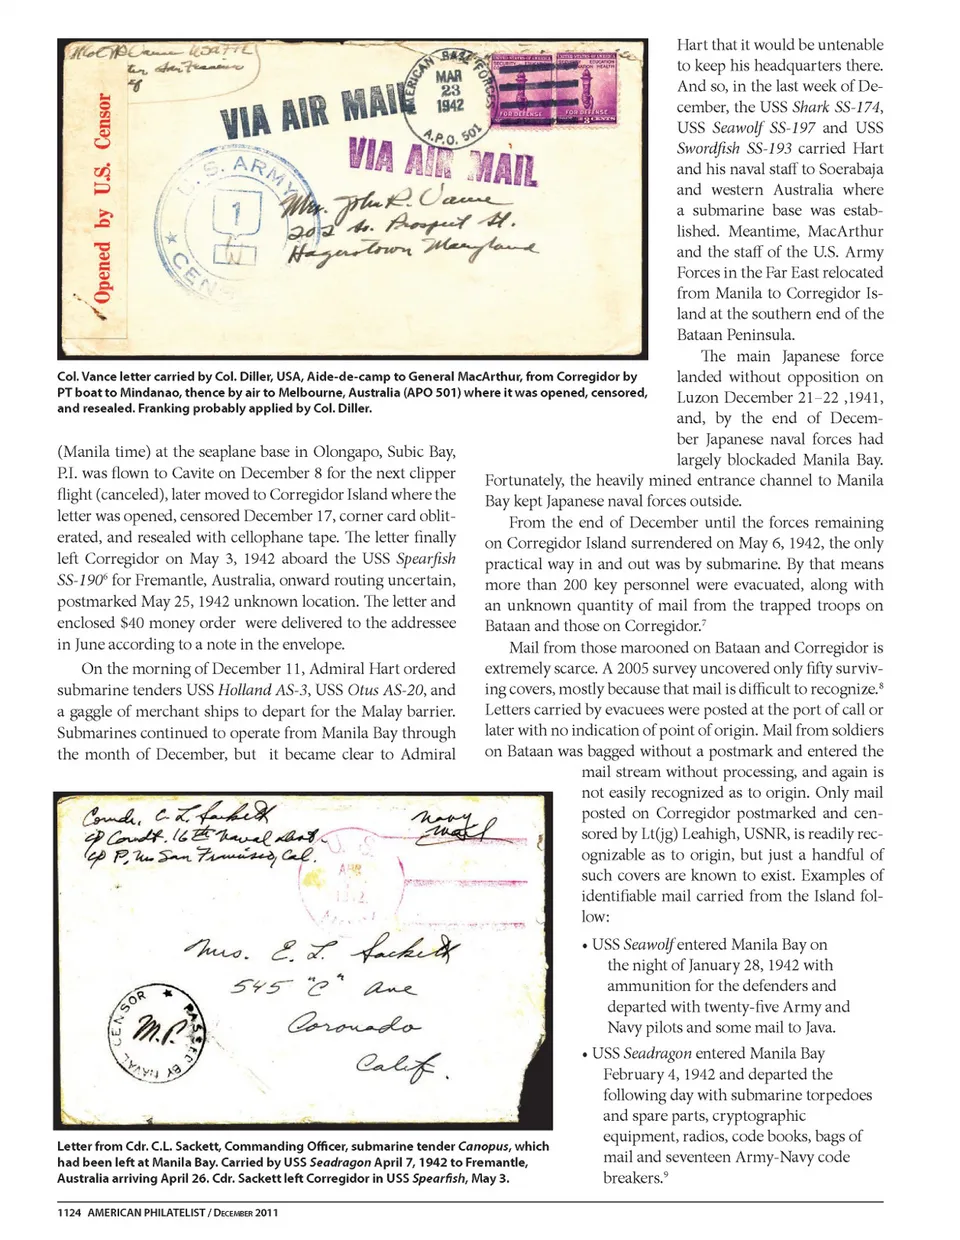 Opened by U.S. Censor
VIA AIR MAIL
AMERICAN BASE FORCES
MAR
23
1942
A.P.O. 501
VIA AIR MAIL
U. S. ARMY
1
W
CEN
Mrs. John R. Vance
202 So. Prospect St.
Hagerstown Maryland
Col. Vance letter carried by Col. Diller, USA, Aide-de-camp to General MacArthur, from Corregidor by
PT boat to Mindanao, thence by air to Melbourne, Australia (APO 501) where it was opened, censored,
and resealed. Franking probably applied by Col. Diller.
(Manila time) at the seaplane base in Olongapo, Subic Bay,
P.I. was flown to Cavite on December 8 for the next clipper
flight (canceled), later moved to Corregidor Island where the
letter was opened, censored December 17, corner card oblit-
erated, and resealed with cellophane tape. The letter finally
left Corregidor on May 3, 1942 aboard the USS Spearfish
SS-190⁶ for Fremantle, Australia, onward routing uncertain,
postmarked May 25, 1942 unknown location. The letter and
enclosed $40 money order were delivered to the addressee
in June according to a note in the envelope.
On the morning of December 11, Admiral Hart ordered
submarine tenders USS Holland AS-3, USS Otus AS-20, and
a gaggle of merchant ships to depart for the Malay barrier.
Submarines continued to operate from Manila Bay through
the month of December, but it became clear to Admiral
Comdr. C. L. Sackett
c/o Comdt. 16th Naval Dist.
c/o P.M. San Francisco, Cal.
Navy
Mail
U. S.
APR
1942
Mrs. E. L. Sackett
545 "C" Ave
Coronado
Calif.
PASSED BY NAVAL CENSOR
M.P.
Letter from Cdr. C.L. Sackett, Commanding Officer, submarine tender Canopus, which
had been left at Manila Bay. Carried by USS Seadragon April 7, 1942 to Fremantle,
Australia arriving April 26. Cdr. Sackett left Corregidor in USS Spearfish, May 3.
Hart that it would be untenable
to keep his headquarters there.
And so, in the last week of De-
cember, the USS Shark SS-174,
USS Seawolf SS-197 and USS
Swordfish SS-193 carried Hart
and his naval staff to Soerabaja
and western Australia where
a submarine base was estab-
lished. Meantime, MacArthur
and the staff of the U.S. Army
Forces in the Far East relocated
from Manila to Corregidor Is-
land at the southern end of the
Bataan Peninsula.
The main Japanese force
landed without opposition on
Luzon December 21–22 ,1941,
and, by the end of Decem-
ber Japanese naval forces had
largely blockaded Manila Bay.
Fortunately, the heavily mined entrance channel to Manila
Bay kept Japanese naval forces outside.
From the end of December until the forces remaining
on Corregidor Island surrendered on May 6, 1942, the only
practical way in and out was by submarine. By that means
more than 200 key personnel were evacuated, along with
an unknown quantity of mail from the trapped troops on
Bataan and those on Corregidor.⁷
Mail from those marooned on Bataan and Corregidor is
extremely scarce. A 2005 survey uncovered only fifty surviv-
ing covers, mostly because that mail is difficult to recognize.⁸
Letters carried by evacuees were posted at the port of call or
later with no indication of point of origin. Mail from soldiers
on Bataan was bagged without a postmark and entered the
mail stream without processing, and again is
not easily recognized as to origin. Only mail
posted on Corregidor postmarked and cen-
sored by Lt(jg) Leahigh, USNR, is readily rec-
ognizable as to origin, but just a handful of
such covers are known to exist. Examples of
identifiable mail carried from the Island fol-
low:
• USS Seawolf entered Manila Bay on
the night of January 28, 1942 with
ammunition for the defenders and
departed with twenty-five Army and
Navy pilots and some mail to Java.
• USS Seadragon entered Manila Bay
February 4, 1942 and departed the
following day with submarine torpedoes
and spare parts, cryptographic
equipment, radios, code books, bags of
mail and seventeen Army-Navy code
breakers.⁹
1124 AMERICAN PHILATELIST / DECEMBER 2011